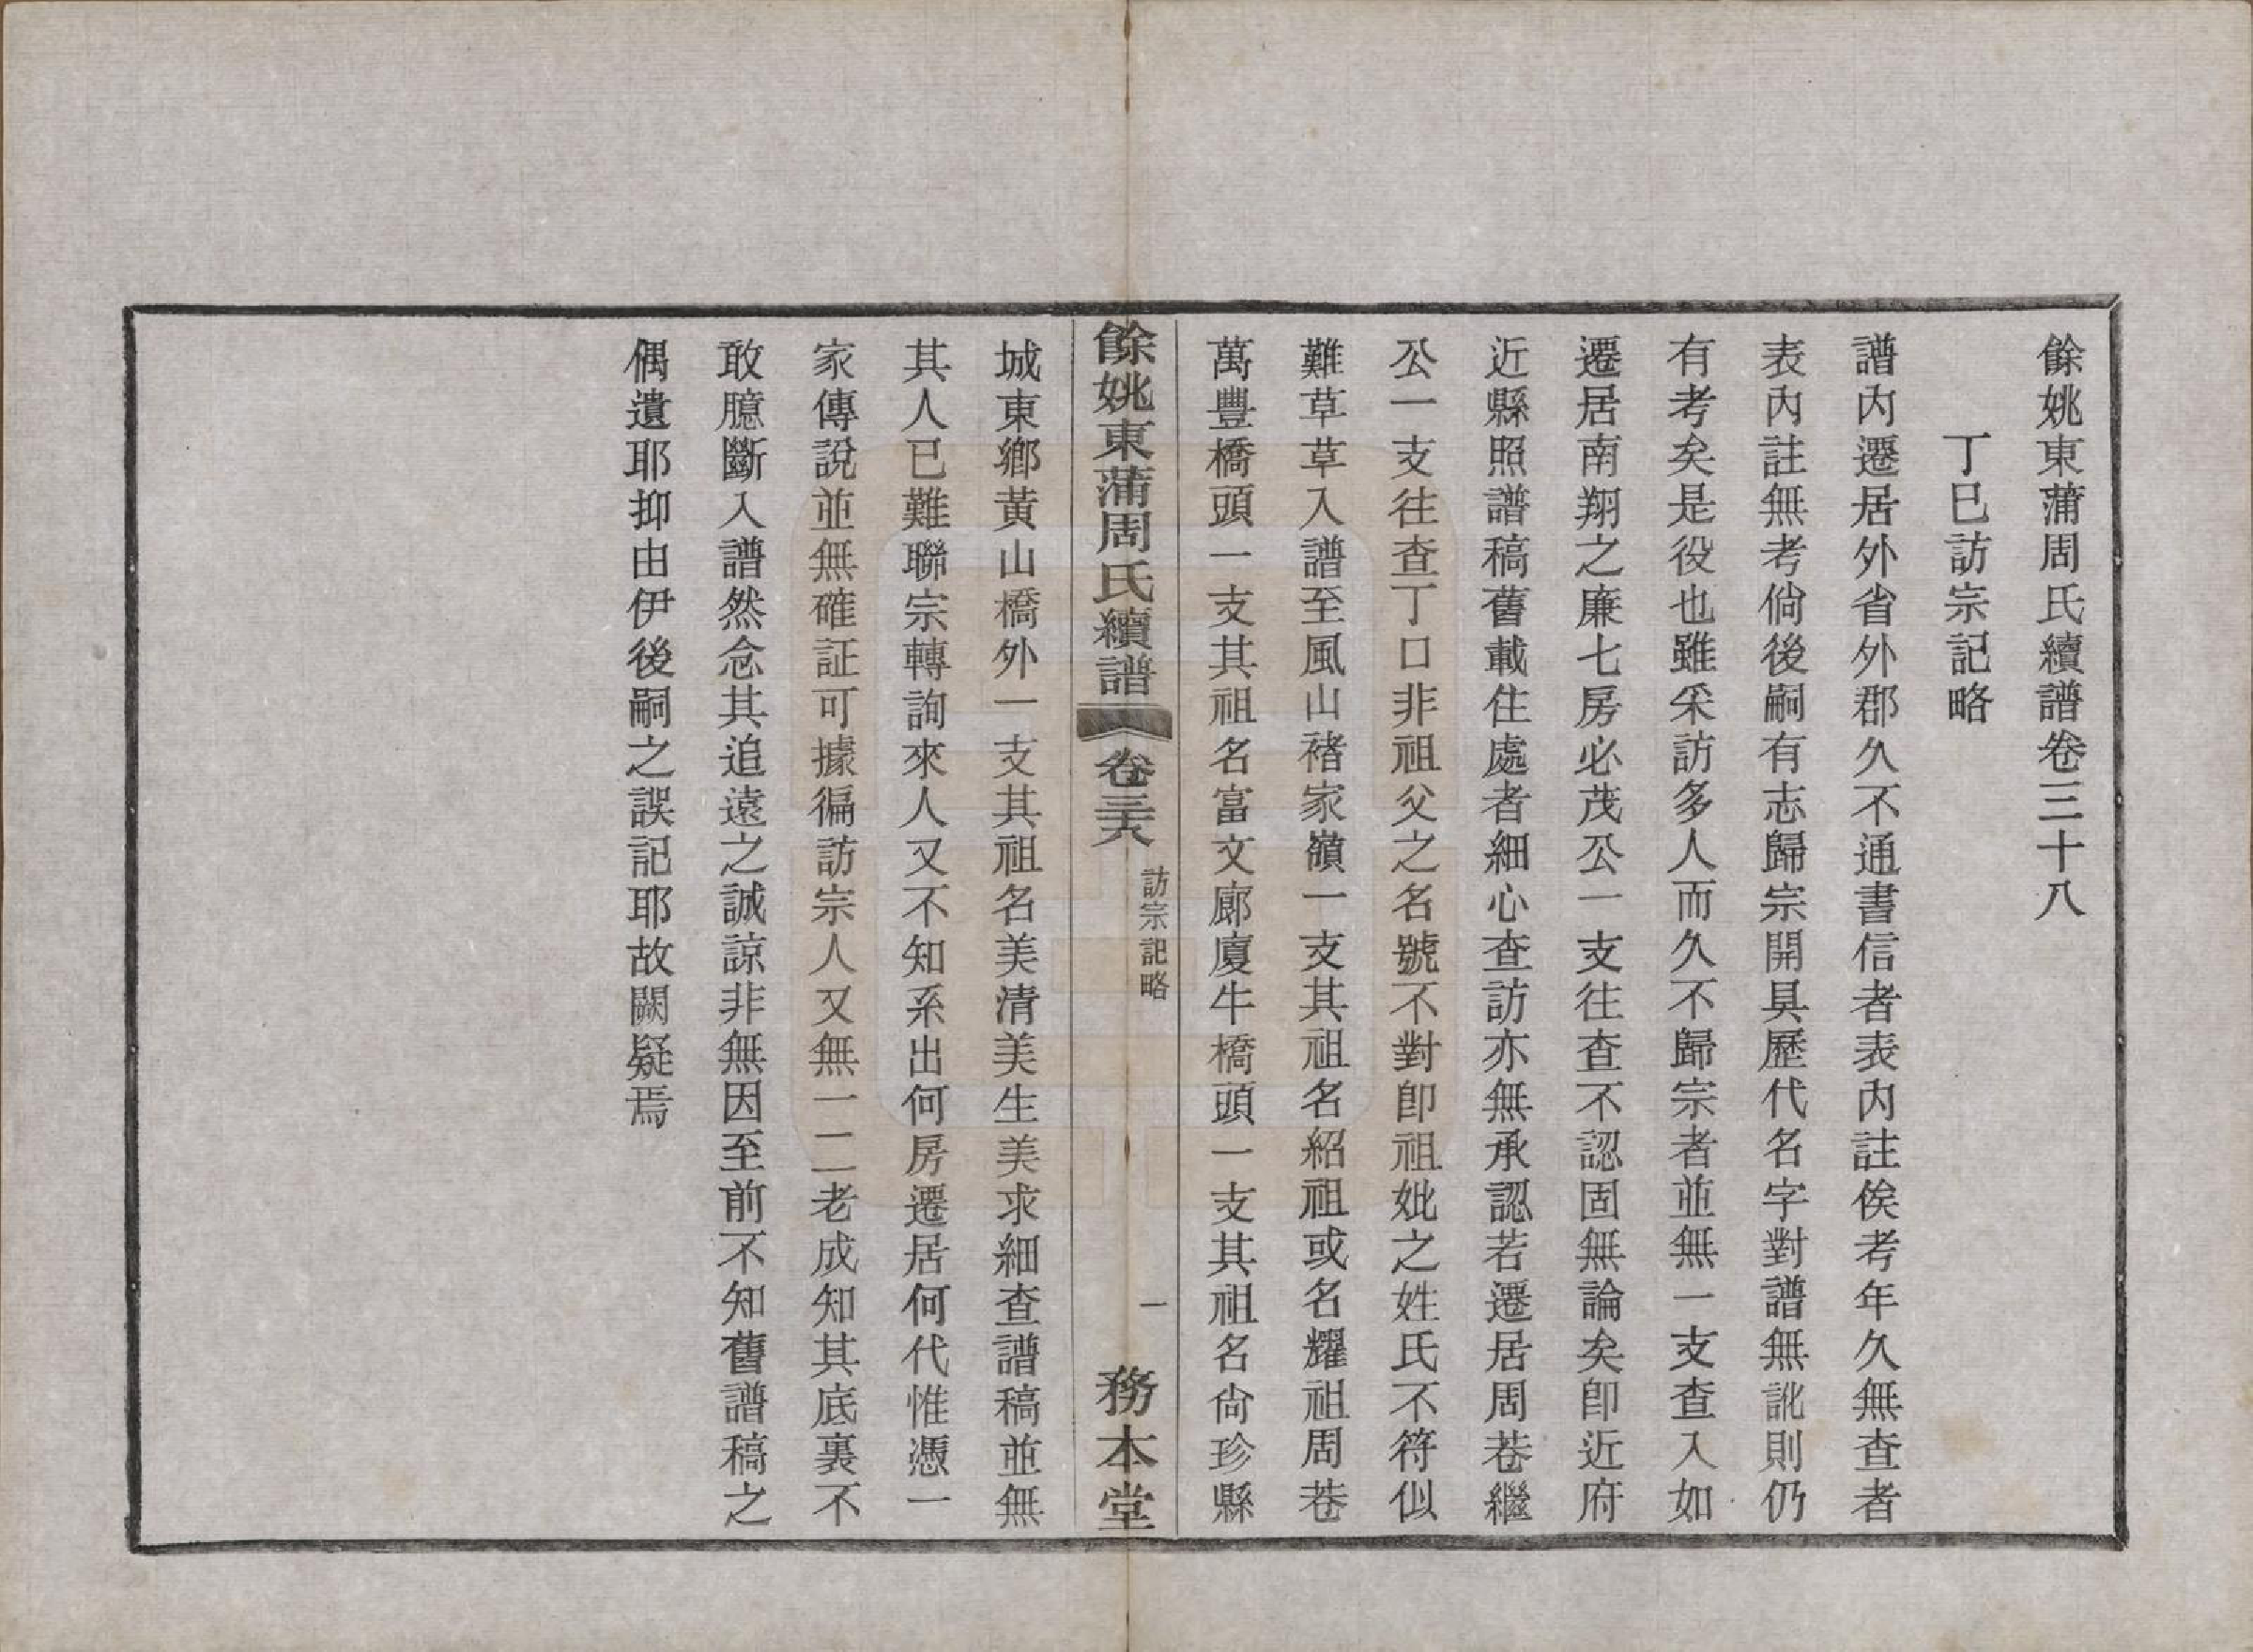 餘姚東蒲周氏續譜卷三十八
丁巳訪宗記略
譜內遷居外省外郡久不通書信者表內註俟考年久無查者
表內註無考倘後嗣有志歸宗開具歷代名字對譜無訛則仍
有考矣是役也雖采訪多人而久不歸宗者並無一支查入如
遷居南翔之廉七房必茂公一支往查不認固無論矣卽近府
近縣照譜稿舊載住處者細心查訪亦無承認若遷居周巷繼
公一支往查丁口非祖父之名號不對卽祖妣之姓氏不符似
難草草入譜至風山褚家嶺一支其祖名紹祖或名耀祖周巷
萬豐橋頭一支其祖名富文廊廈牛橋頭一支其祖名尙珍縣
餘姚東蒲周氏續譜 卷三十八 訪宗記略 一 務本堂
城東鄉黃山橋外一支其祖名美清美生美求細查譜稿並無
其人已難聯宗轉詢來人又不知系出何房遷居何代惟憑一
家傳說並無確証可據徧訪宗人又無一二老成知其底裏不
敢臆斷入譜然念其追遠之誠諒非無因至前不知舊譜稿之
偶遺耶抑由伊後嗣之誤記耶故闕疑焉